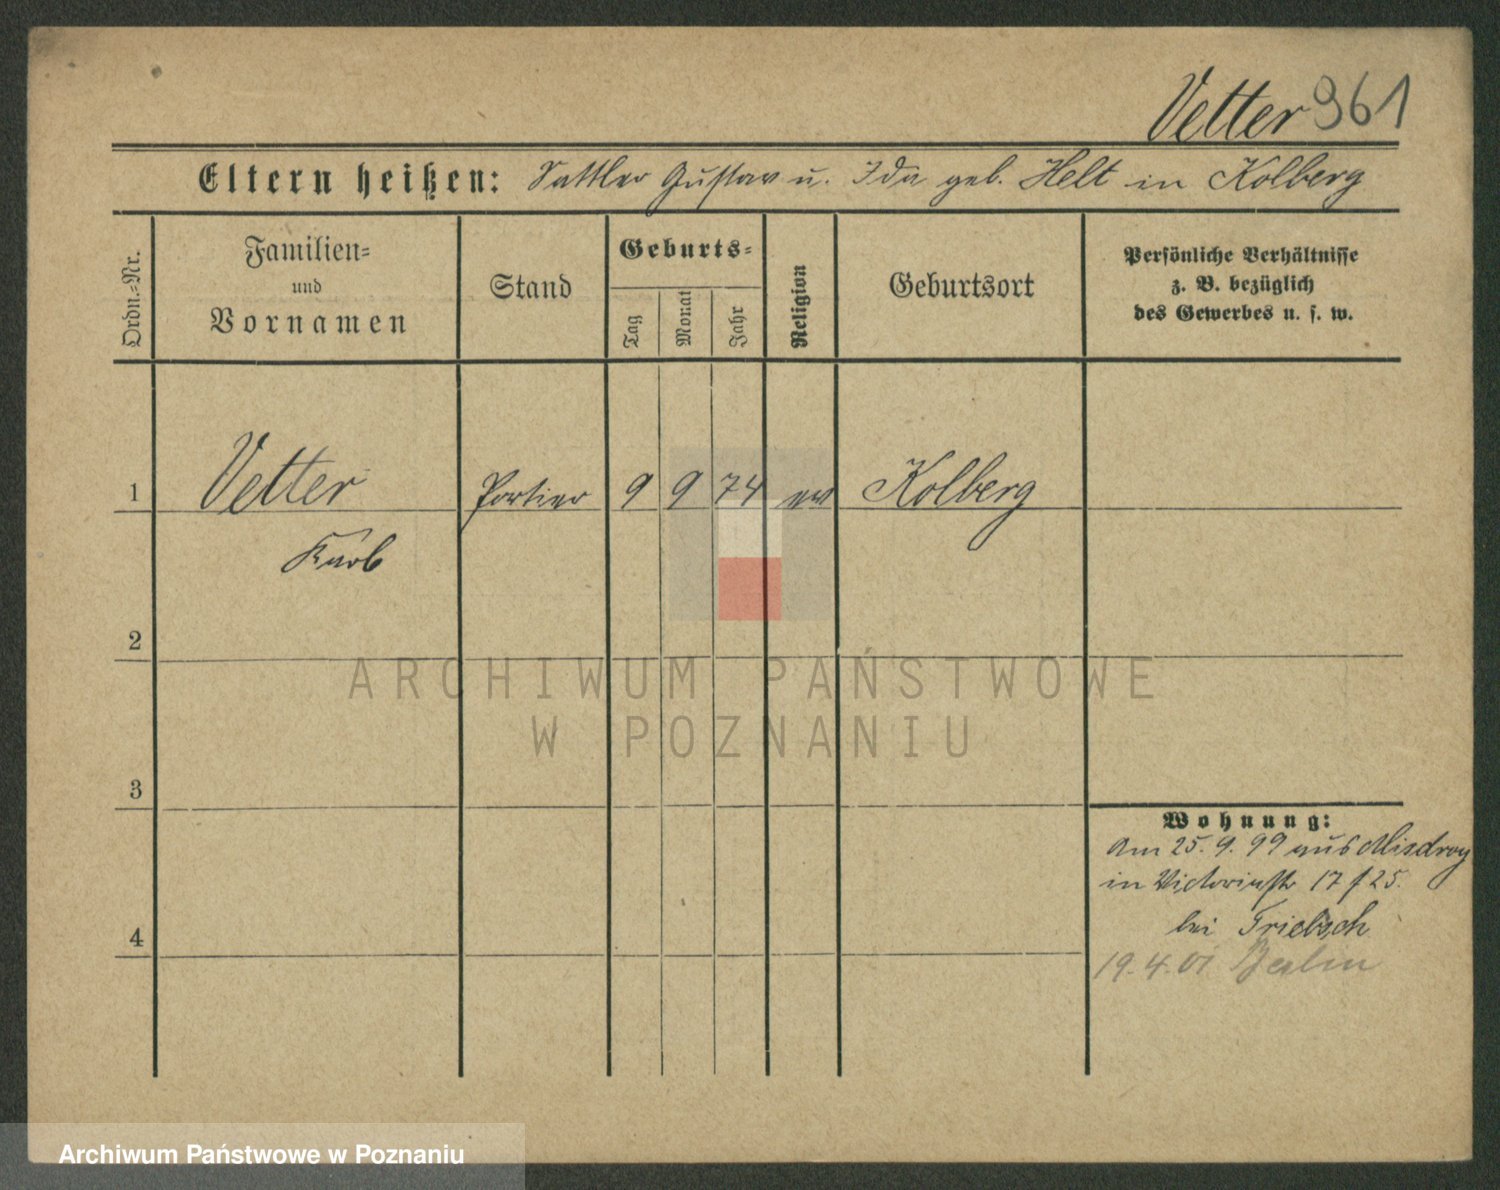 Vetter 961
Eltern heißen: Sattler Gustav u. Ida geb. Helt in Kolberg
Ordn.=Nr.
Familien=
und
Vornamen
Stand
Geburts=
Tag
Monat
Jahr
Religion
Geburtsort
Persönliche Verhältnisse
z. B. bezüglich
des Gewerbes u. s. w.
1 Vetter Portier 9 9 74 ev Kolberg
2
3
4
Wohnung:
Am 25. 9. 99 aus Misdroy
in Victoriastr 17 f 25.
bei Triebsch
19.4.01 Berlin
ARCHIWUM PAŃSTWOWE
W POZNANIU
Archiwum Państwowe w Poznaniu